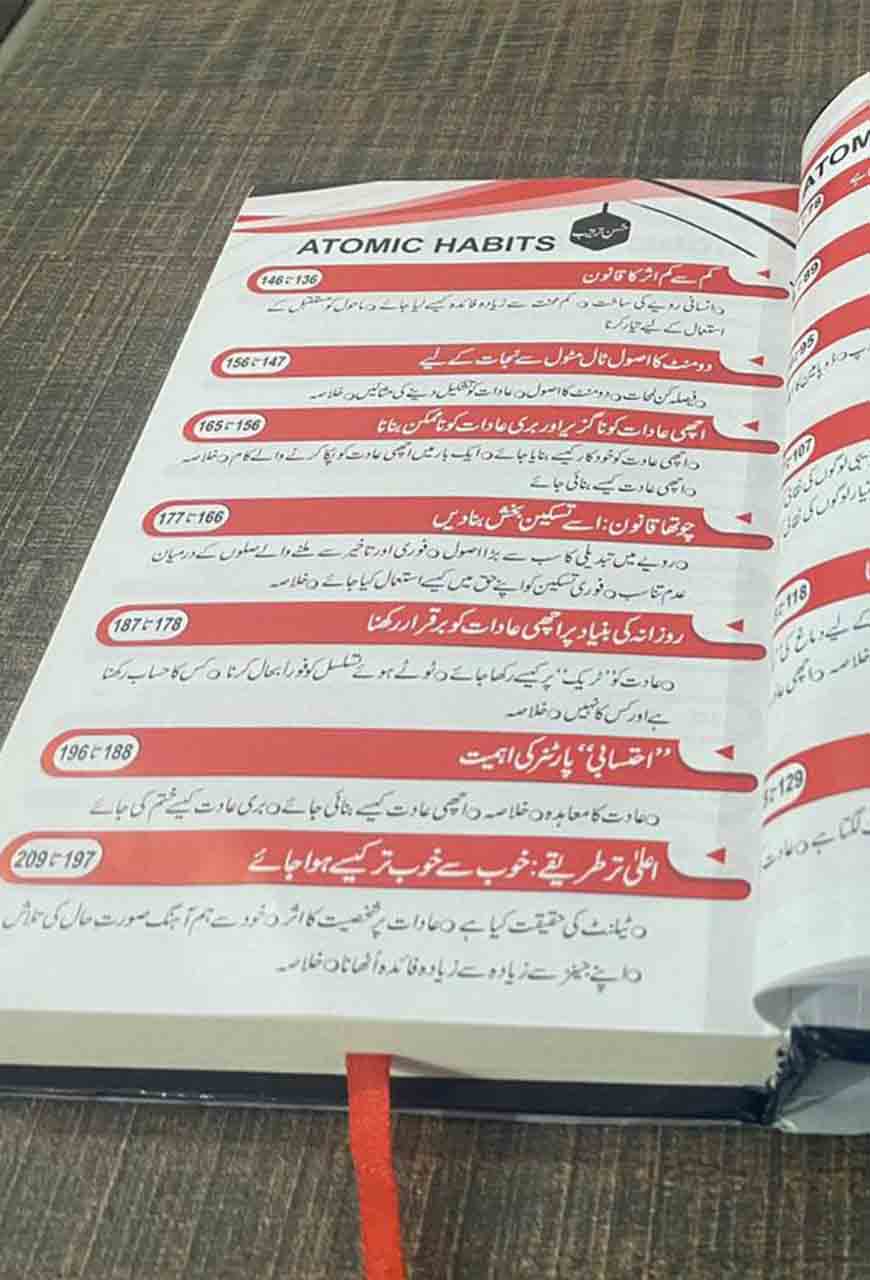 ATOMIC HABITS
حسن ترتیب
کم سے کم اثر کا قانون 136 تا 146
○انسانی رویے کی ساخت ○کم محنت سے زیادہ فائدہ کیسے لیا جائے ○ماحول کو مستقبل کے
استعمال کے لیے تیار کرنا
دو منٹ کا اصول ٹال مٹول سے نجات کے لیے 147 تا 156
○فیصلہ کن لمحات ○دو منٹ کا اصول ○عادات کو تشکیل دینے کی مثالیں ○خلاصہ
اچھی عادات کو ناگزیر اور بری عادات کو ناممکن بنانا 156 تا 165
○اچھی عادت کو خودکار کیسے بنایا جائے ○ایک بار میں اچھی عادت کو پکا کرنے والے کام ○خلاصہ
○اچھی عادت کیسے بنائی جائے
چوتھا قانون: اسے تسکین بخش بنا دیں 166 تا 177
○رویے میں تبدیلی کا سب سے بڑا اصول ○فوری اور تاخیر سے ملنے والے صلوں کے درمیان
عدم تناسب ○فوری تسکین کو اپنے حق میں کیسے استعمال کیا جائے ○خلاصہ
روزانہ کی بنیاد پر اچھی عادات کو برقرار رکھنا 178 تا 187
○عادت کو ”ٹریک“ پر کیسے رکھا جائے ○ٹوٹے ہوئے تسلسل کو فوراً بحال کرنا ○کس کا حساب رکھنا
ہے اور کس کا نہیں ○خلاصہ
”احتسابی“ پارٹنر کی اہمیت 188 تا 196
○عادت کا معاہدہ ○خلاصہ ○اچھی عادت کیسے بنائی جائے ○بری عادت کیسے ختم کی جائے
اعلیٰ تر طریقے: خوب سے خوب تر کیسے ہوا جائے 197 تا 209
○ٹیلنٹ کی حقیقت کیا ہے ○عادات پر شخصیت کا اثر ○خود سے ہم آہنگ صورت حال کی تلاش
○اپنے جینز سے زیادہ سے زیادہ فائدہ اُٹھانا ○خلاصہ
ATOM
78
89
95
107
118
129